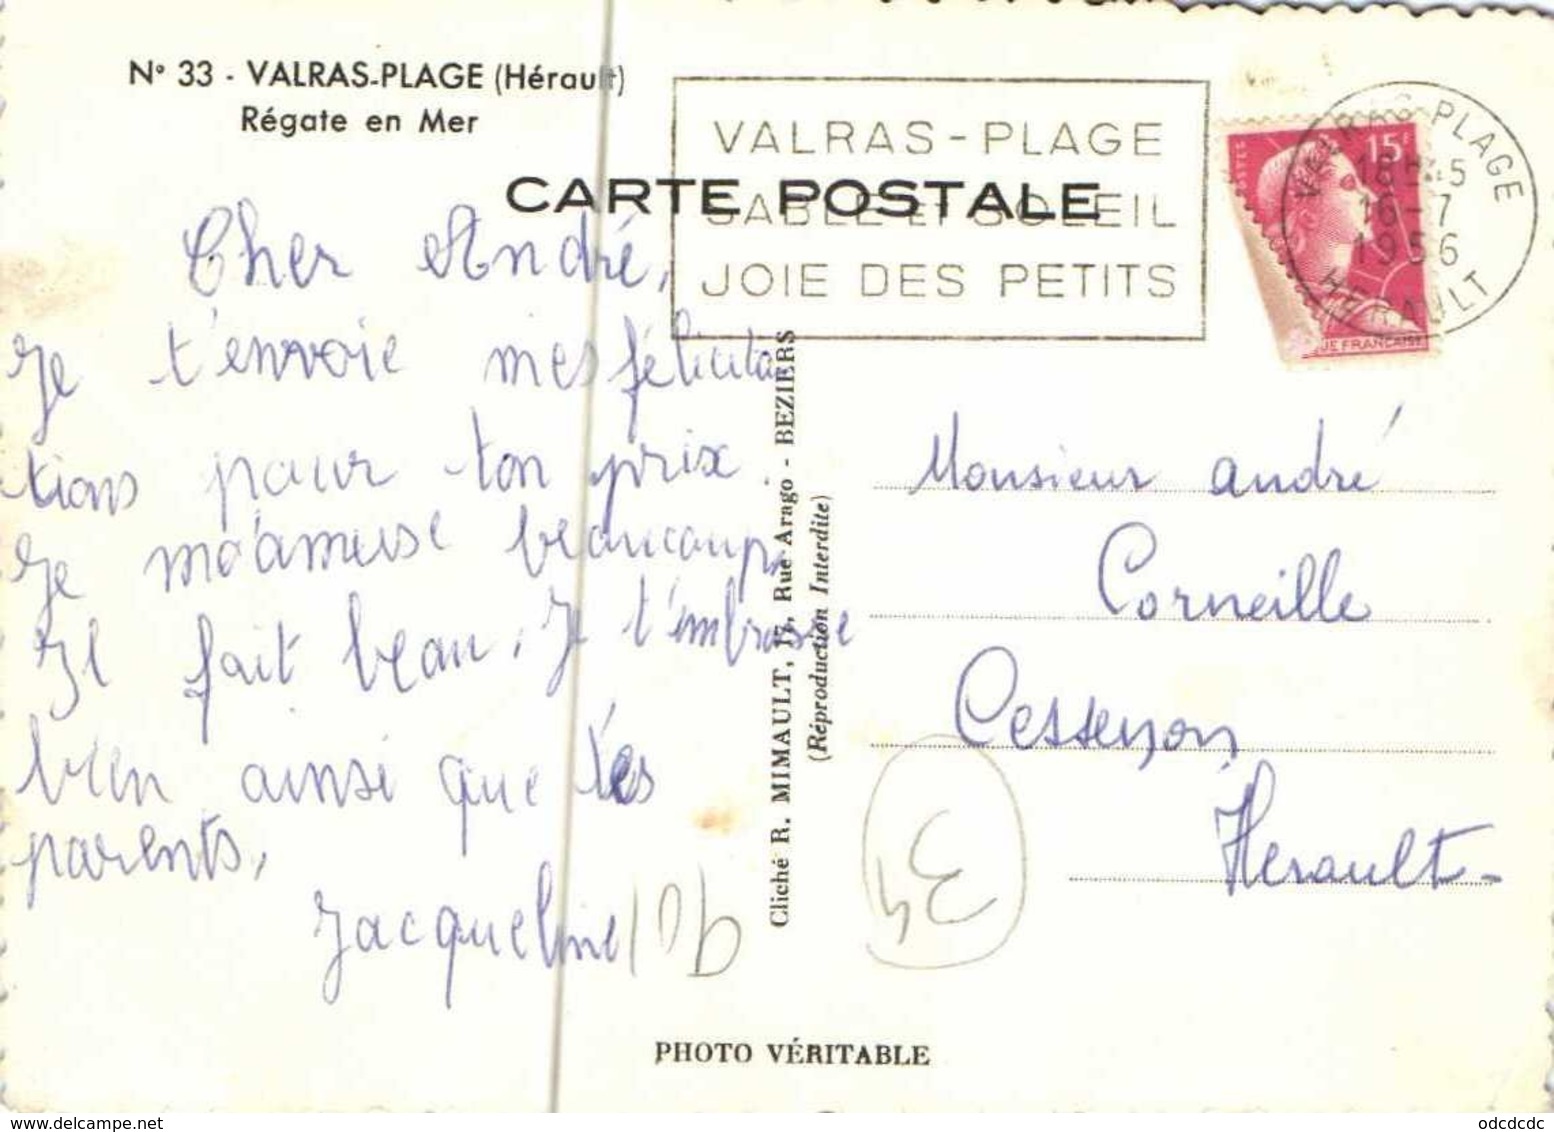 N° 33 - VALRAS-PLAGE (Hérault)
Régate en Mer
CARTE POSTALE
VALRAS-PLAGE
SABLE ET SOLEIL
JOIE DES PETITS
VALRAS-PLAGE
16-7
1956
HÉRAULT
15F
POSTES
UE FRANÇAISE
Cher André,
Je t'envoie mes félicita
tions pour ton prix.
Je m'amuse beaucoup,
Il fait beau. Je t'embrasse
bien ainsi que tes
parents,
Jacqueline
Cliché R. MIMAULT, 17, Rue Arago - BEZIERS
(Réproduction Interdite)
Monsieur André
Corneille
Cessenon
Hérault-
34
PHOTO VÉRITABLE
www.delcampe.net
odcdcdc